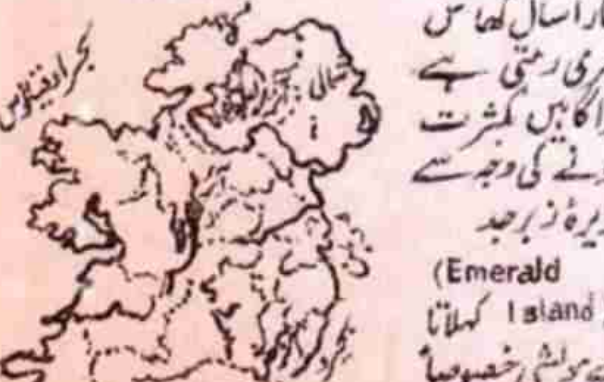 بحر اوقیانوس
شمالی
ارا سال گھاس
ہری رہتی ہے
راگاہیں بکثرت
ونے کی وجہ سے
یرۂ زبرجد
(Emerald
Island کہلاتا
مویشی خصوصاً